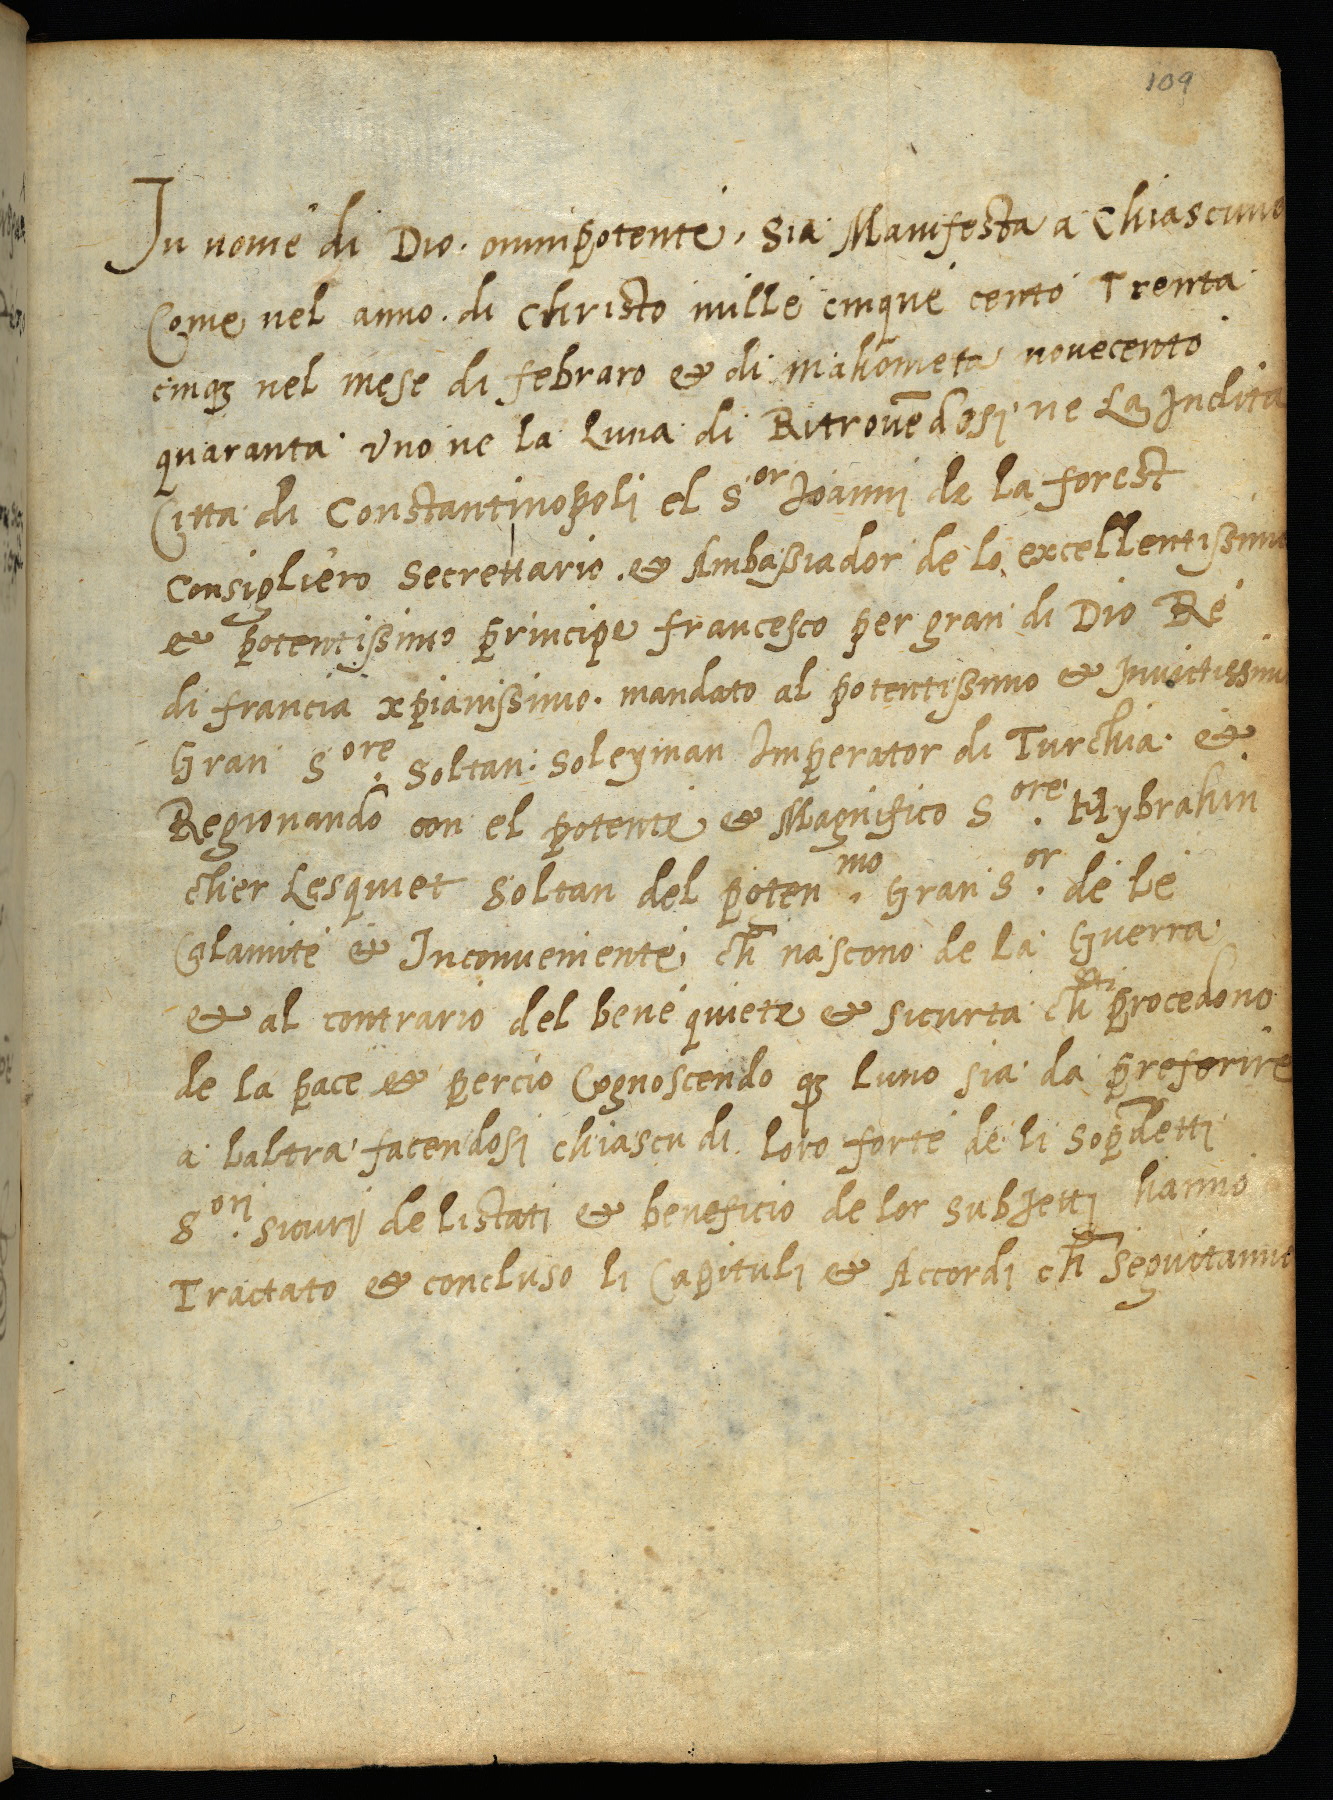 109
In nome di Dio. omnipotente, Sia Manifesta a Chiascuno
Come nel anno. di Christo mille cinque cento Trenta
cinqꝫ nel mese di febraro & di mahometa novecento
quaranta vno ne la Luna di Ritrouēdosi ne La Inclita
Citta di Constantinopoli el S^or Joanni de la forest
Consigliero Secrettario. & Ambaßiador de lo excellentißimo
& potentißimo principe francesco per gran di Dio Re
di francia xp̄ianißimo. mandato al potentißimo & Invictissimo
Gran S^ore. Soltan. Soleyman Imperator di Turchia &
Regionando con el potente & Magnifico S^ore. Hybrahin
cher Lesquiet Soltan del poten^mo. Gran S^or. de le
Calamite & Inconveniente, ch̄ nascono de la Guerra
& al contrario del bene quiete & sicurta ch̄ procedono
de la pace & percio Cognoscendo qꝫ luno sia da preferire
a laltra facendosi chiascu di loro forte de li sopᵈetti
S^ori. sicurij de listati & beneficio de lor subjetti hanno
Tractato & concluso li Capituli & Accordi ch̄ Seguitanno